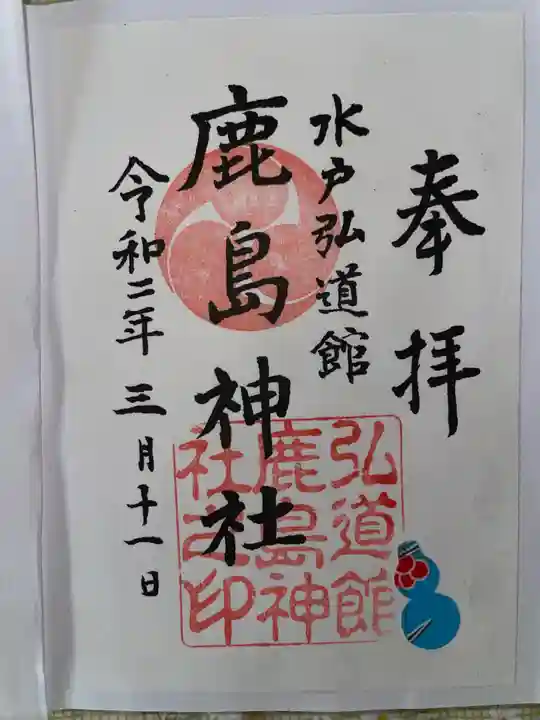 奉拝
水戸弘道館
鹿島神社
令和二年三月十一日
弘道館
鹿島神
社之印